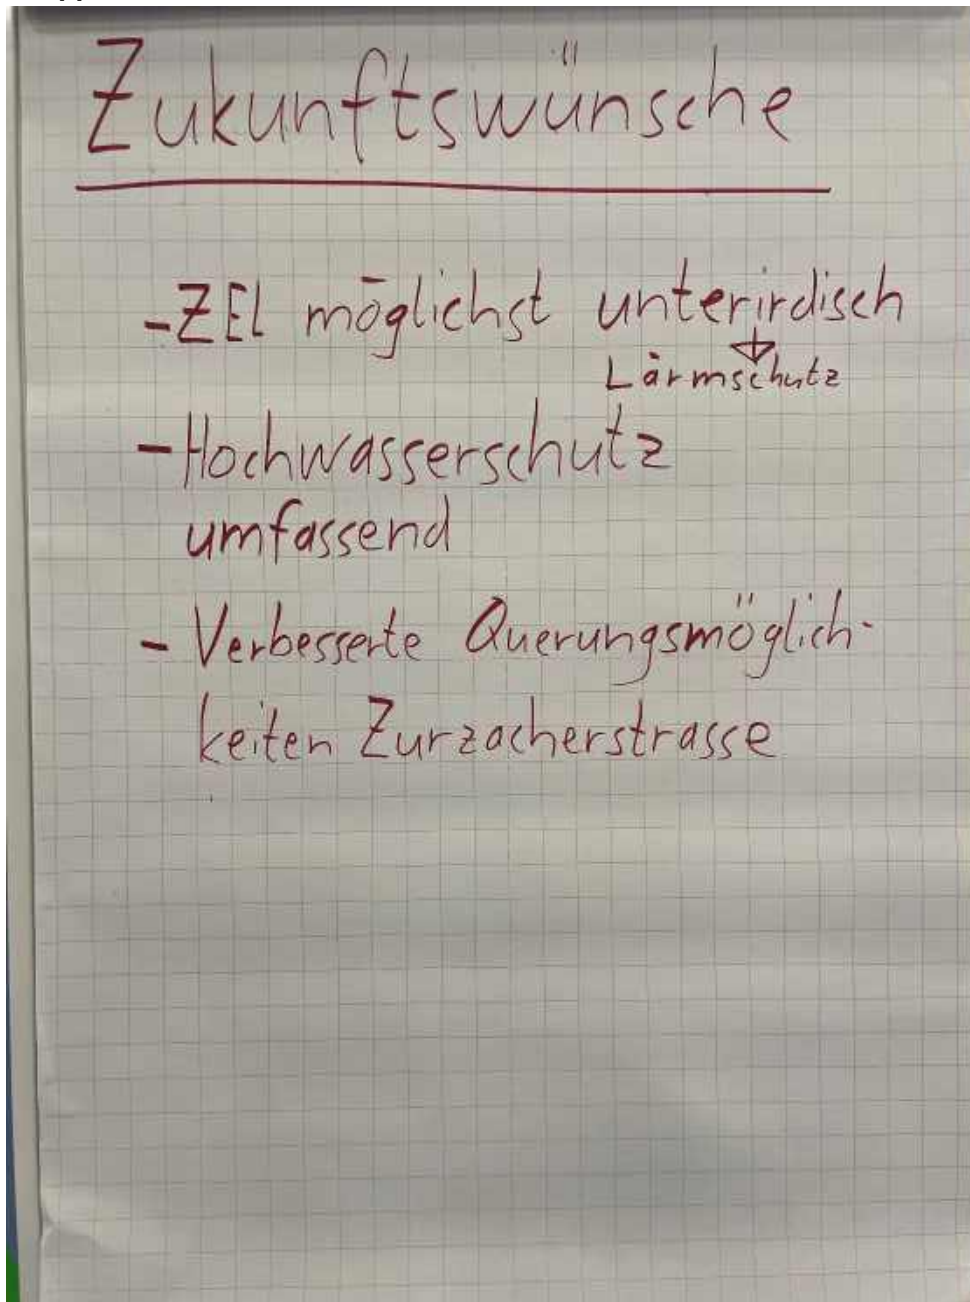 Zukunftswünsche
- ZEL möglichst unterirdisch
Lärmschutz
- Hochwasserschutz
umfassend
- Verbesserte Querungsmöglich-
keiten Zurzacherstrasse